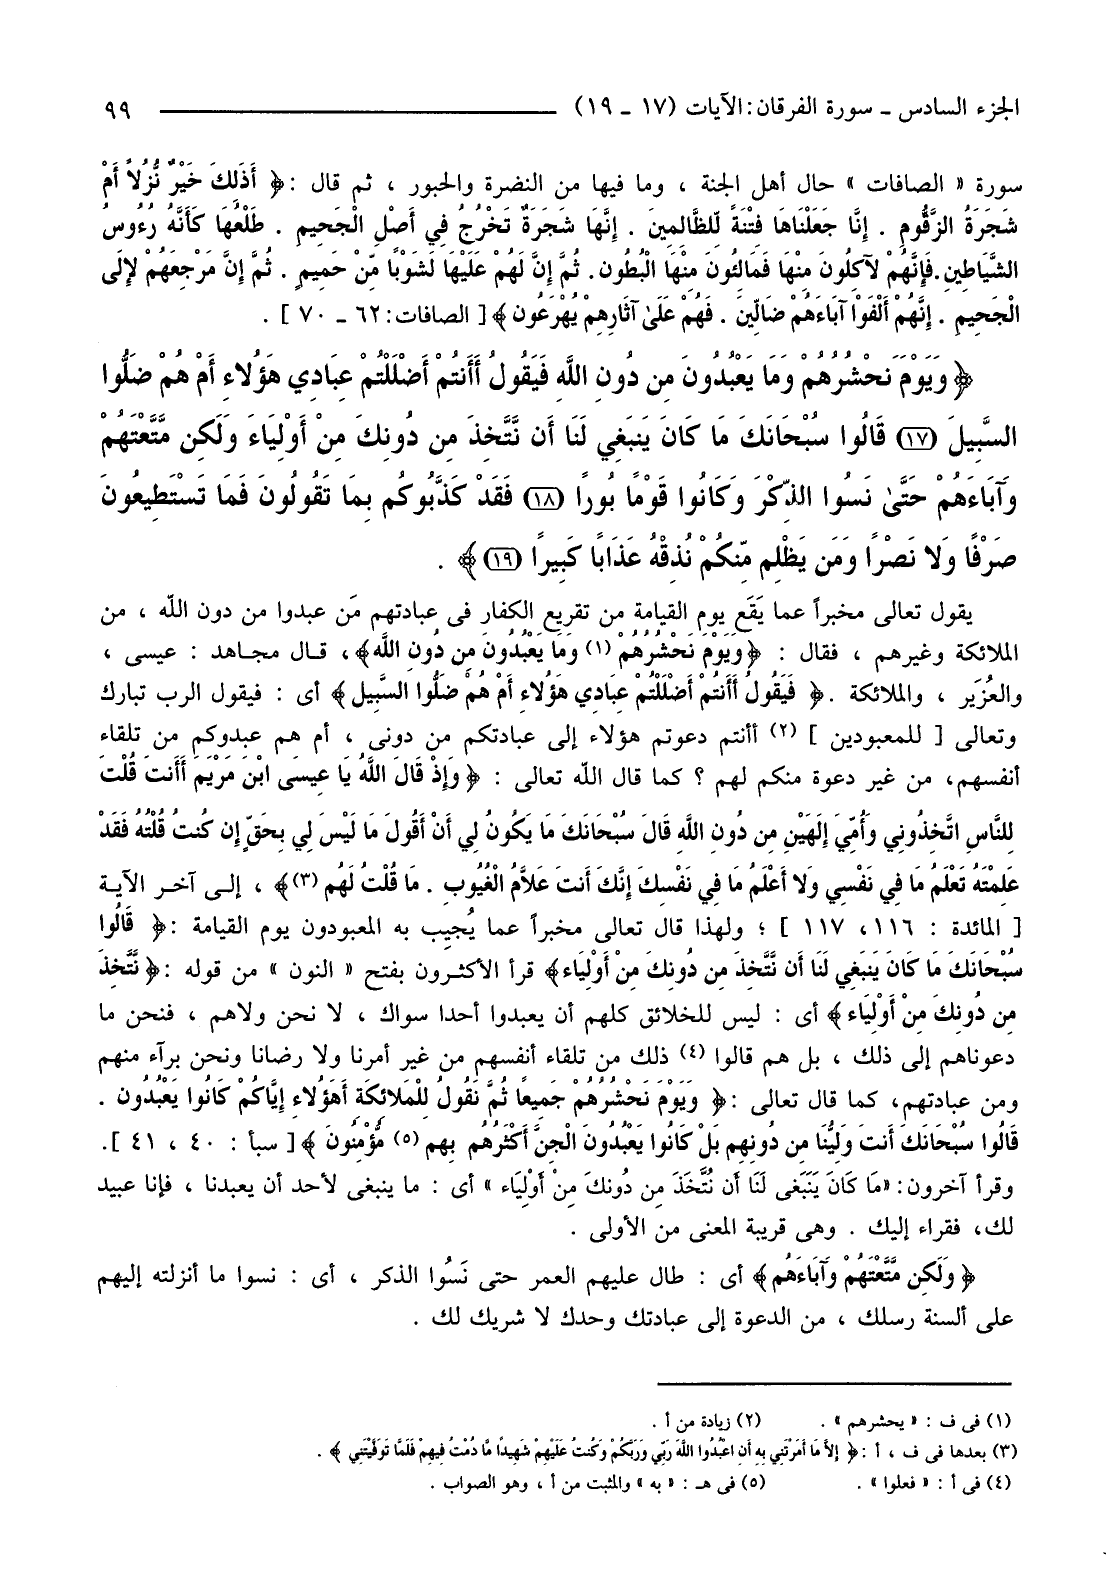 الجزء السادس ـ سورة الفرقان: الآيات (١٧ ـ ١٩) ٩٩
سورة « الصافات » حال أهل الجنة ، وما فيها من النضرة والحبور ، ثم قال : ﴿ أَذَلِكَ خَيْرٌ نُّزُلاً أَمْ
شَجَرَةُ الزَّقُّومِ . إِنَّا جَعَلْنَاهَا فِتْنَةً لِّلظَّالِمِينَ . إِنَّهَا شَجَرَةٌ تَخْرُجُ فِي أَصْلِ الْجَحِيمِ . طَلْعُهَا كَأَنَّهُ رُءُوسُ
الشَّيَاطِينِ. فَإِنَّهُمْ لآكِلُونَ مِنْهَا فَمَالِئُونَ مِنْهَا الْبُطُونَ. ثُمَّ إِنَّ لَهُمْ عَلَيْهَا لَشَوْبًا مِّنْ حَمِيمٍ . ثُمَّ إِنَّ مَرْجِعَهُمْ لإِلَى
الْجَحِيمِ . إِنَّهُمْ أَلْفَوْا آبَاءَهُمْ ضَالِّينَ . فَهُمْ عَلَىٰ آثَارِهِمْ يُهْرَعُونَ ﴾ [ الصافات: ٦٢ ـ ٧٠ ] .
﴿ وَيَوْمَ نَحْشُرُهُمْ وَمَا يَعْبُدُونَ مِن دُونِ اللَّهِ فَيَقُولُ أَأَنتُمْ أَضْلَلْتُمْ عِبَادِي هَؤُلاءِ أَمْ هُمْ ضَلُّوا
السَّبِيلَ (١٧) قَالُوا سُبْحَانَكَ مَا كَانَ يَنبَغِي لَنَا أَن نَّتَّخِذَ مِن دُونِكَ مِنْ أَوْلِيَاءَ وَلَكِن مَّتَّعْتَهُمْ
وَآبَاءَهُمْ حَتَّىٰ نَسُوا الذِّكْرَ وَكَانُوا قَوْمًا بُورًا (١٨) فَقَدْ كَذَّبُوكُم بِمَا تَقُولُونَ فَمَا تَسْتَطِيعُونَ
صَرْفًا وَلا نَصْرًا وَمَن يَظْلِم مِّنكُمْ نُذِقْهُ عَذَابًا كَبِيرًا (١٩) ﴾ .
يقول تعالى مخبراً عما يَقَع يوم القيامة من تقريع الكفار فى عبادتهم مَن عبدوا من دون الله ، من
الملائكة وغيرهم ، فقال : ﴿ وَيَوْمَ نَحْشُرُهُمْ (١) وَمَا يَعْبُدُونَ مِن دُونِ اللَّهِ ﴾ ، قـال مجـاهد : عيسى ،
والعُزَير ، والملائكة . ﴿ فَيَقُولُ أَأَنتُمْ أَضْلَلْتُمْ عِبَادِي هَؤُلاءِ أَمْ هُمْ ضَلُّوا السَّبِيلَ ﴾ أى : فيقول الرب تبارك
وتعالى [ للمعبودين ] (٢) أأنتم دعوتم هؤلاء إلى عبادتكم من دونى ، أم هم عبدوكم من تلقاء
أنفسهم، من غير دعوة منكم لهم ؟ كما قال الله تعالى : ﴿ وَإِذْ قَالَ اللَّهُ يَا عِيسَى ابْنَ مَرْيَمَ أَأَنتَ قُلْتَ
لِلنَّاسِ اتَّخِذُونِي وَأُمِّيَ إِلَهَيْنِ مِن دُونِ اللَّهِ قَالَ سُبْحَانَكَ مَا يَكُونُ لِي أَنْ أَقُولَ مَا لَيْسَ لِي بِحَقٍّ إِن كُنتُ قُلْتُهُ فَقَدْ
عَلِمْتَهُ تَعْلَمُ مَا فِي نَفْسِي وَلا أَعْلَمُ مَا فِي نَفْسِكَ إِنَّكَ أَنتَ عَلاَّمُ الْغُيُوبِ . مَا قُلْتُ لَهُم (٣) ﴾ ، إلـى آخـر الآيـة
[ المائدة : ١١٦ ، ١١٧ ] ؛ ولهذا قال تعالى مخبراً عما يُجيب به المعبودون يوم القيامة : ﴿ قَالُوا
سُبْحَانَكَ مَا كَانَ يَنبَغِي لَنَا أَن نَّتَّخِذَ مِن دُونِكَ مِنْ أَوْلِيَاءَ ﴾ قرأ الأكثـرون بفتح « النون » من قوله : ﴿ نَّتَّخِذَ
مِن دُونِكَ مِنْ أَوْلِيَاءَ ﴾ أى : ليس للخلائق كلهم أن يعبدوا أحدا سواك ، لا نحن ولاهم ، فنحن ما
دعوناهم إلى ذلك ، بل هم قالوا (٤) ذلك من تلقاء أنفسهم من غير أمرنا ولا رضانا ونحن برآء منهم
ومن عبادتهم، كما قال تعالى : ﴿ وَيَوْمَ نَحْشُرُهُمْ جَمِيعًا ثُمَّ نَقُولُ لِلْمَلائِكَةِ أَهَؤُلاءِ إِيَّاكُمْ كَانُوا يَعْبُدُونَ .
قَالُوا سُبْحَانَكَ أَنتَ وَلِيُّنَا مِن دُونِهِم بَلْ كَانُوا يَعْبُدُونَ الْجِنَّ أَكْثَرُهُم بِهِم (٥) مُّؤْمِنُونَ ﴾ [ سبأ : ٤٠ ، ٤١ ].
وقرأ آخرون: «مَا كَانَ يَنَبَغى لَنَا أَن نُتَّخَذَ مِن دُونِكَ مِنْ أَوْلِيَاء » أى : ما ينبغى لأحد أن يعبدنا ، فإنا عبيد
لك، فقراء إليك . وهى قريبة المعنى من الأولى .
﴿ وَلَكِن مَّتَّعْتَهُمْ وَآبَاءَهُم ﴾ أى : طال عليهم العمر حتى نَسُوا الذكر ، أى : نسوا ما أنزلته إليهم
على ألسنة رسلك ، من الدعوة إلى عبادتك وحدك لا شريك لك .
(١) فى ف : « يحشرهم » . (٢) زيادة من أ .
(٣) بعدها فى ف ، أ : ﴿ إِلاَّ مَا أَمَرْتَنِي بِهِ أَنِ اعْبُدُوا اللَّهَ رَبِّي وَرَبَّكُمْ وَكُنتُ عَلَيْهِمْ شَهِيدًا مَّا دُمْتُ فِيهِمْ فَلَمَّا تَوَفَّيْتَنِي ﴾ .
(٤) فى أ : « فعلوا » . (٥) فى هـ : « به » والمثبت من أ ، وهو الصواب .